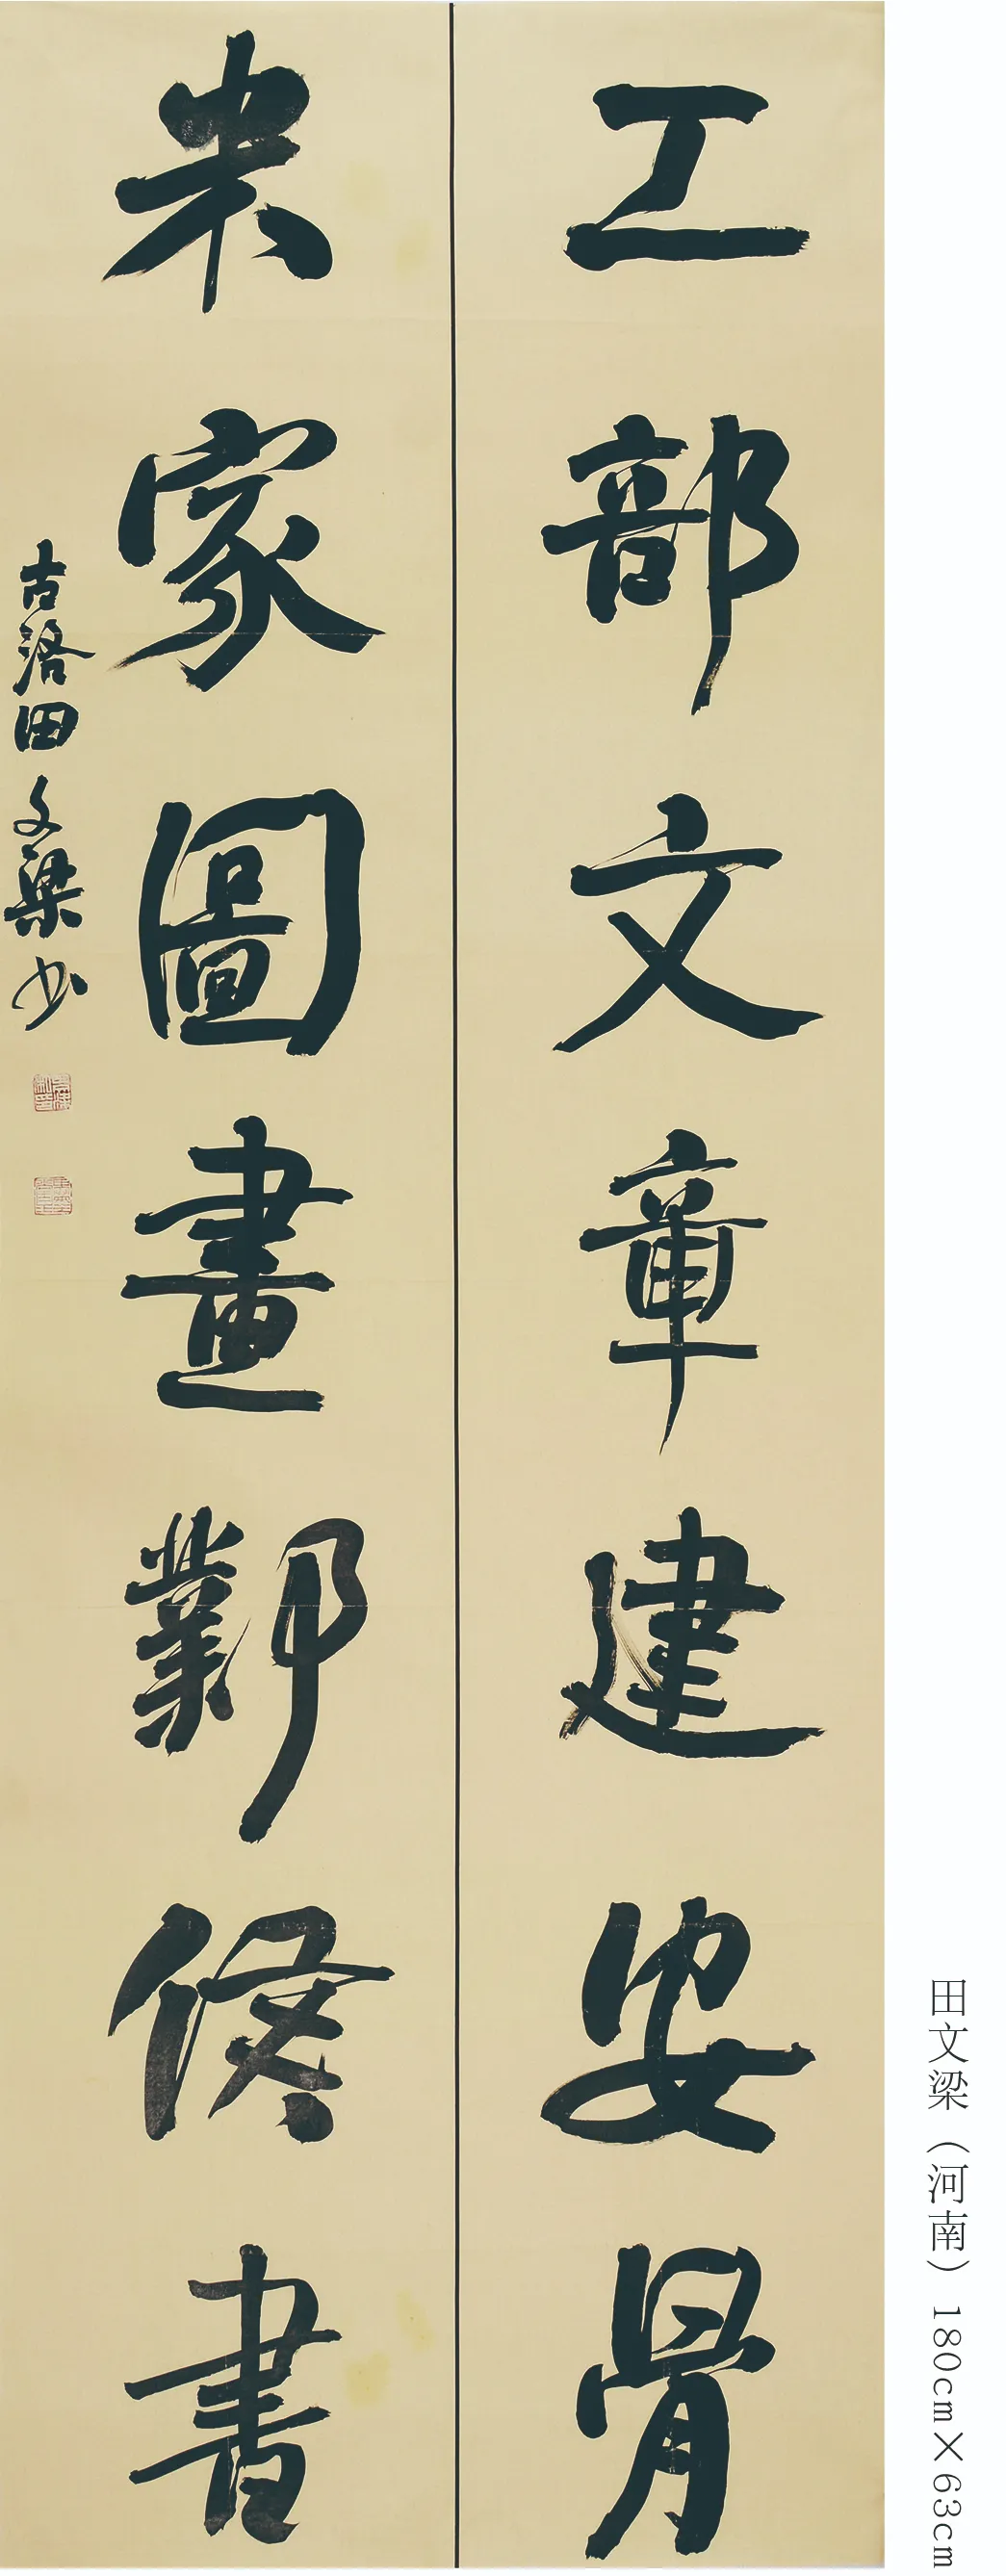 工部文章建安骨
米家圖畫鄴侯書
古洛田文梁书
田文梁（河南） 180cm×63cm